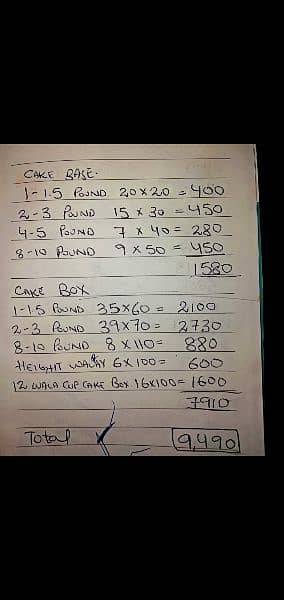 CAKE BASE.
1-1.5 POUND 20x20 = 400
2-3 POUND 15 x 30 = 450
4-5 POUND 7 x 40 = 280
8-10 POUND 9 x 50 = 450
1580
CAKE BOX
1-1.5 POUND 35x60 = 2100
2-3 POUND 39x70 = 2730
8-10 POUND 8 x 110 = 880
HEIGHIT WALAY 6x100 = 600
12 WALA CUP CAKE BOX 16x100 = 1600
7910
Total 9,490